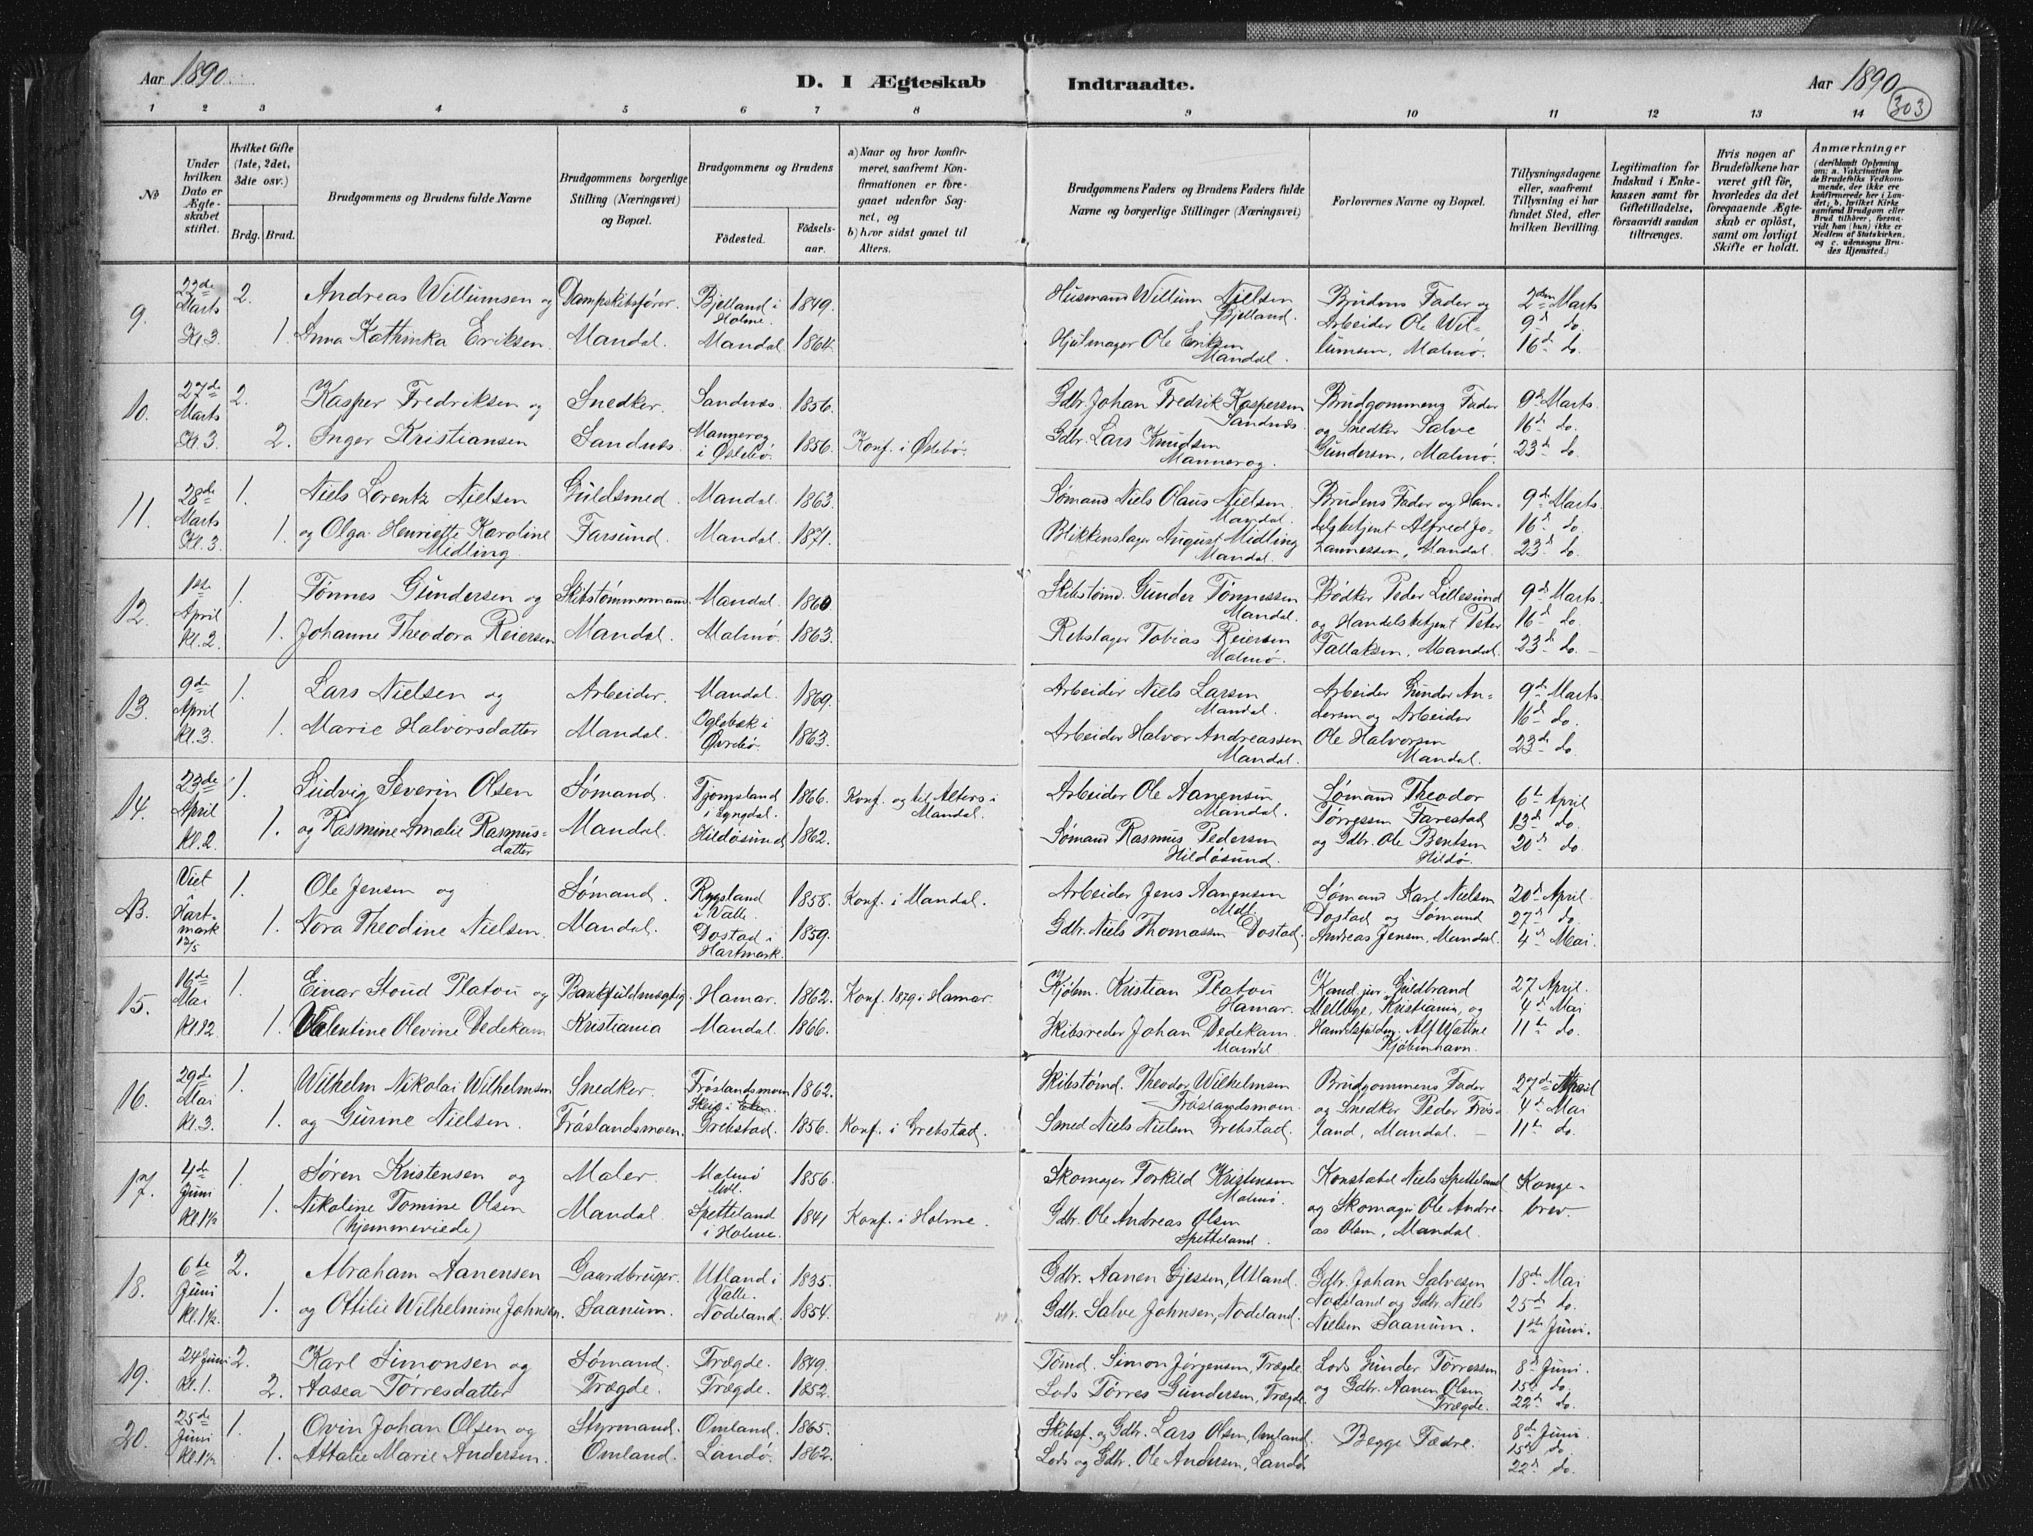 Aar 1890
D. I Ægteskab
Indtraadte.
Aar 1890
303
1 2 3 4 5 6 7 8 9 10 11 12 13 14
No
Under hvilken Dato er Ægteskabet stiftet.
Hvilket Gifte (1ste, 2det, 3die osv.)
Brdg. Brud.
Brudgommens og Brudens fulde Navne
Brudgommens borgerlige Stilling (Næringsvei) og Bopæl.
Brudgommens og Brudens
Födested.
Födselsaar.
a) Naar og hvor konfirmeret, saafremt Konfirmationen er foregaaet udenfor Sognet, og
b) hvor sidst gaaet til Alters.
Brudgommens Faders og Brudens Faders fulde Navne og borgerlige Stillinger (Næringsvei)
Forlovernes Navne og Bopæl.
Tillysningsdagene eller, saafremt Tillysning ei har fundet Sted, efter hvilken Bevilling.
Legitimation for Indskud i Enkekassen samt for Giftetilladelse, forsaavidt saadan tiltrænges.
Hvis nogen af Brudefolkene har været gift før, hvorledes da det foregaaende Ægteskab er opløst, samt om lovligt Skifte er holdt.
Anmærkninger
9. 22de Marts Kl. 3 2. 1.
Andreas Willumsen og Dampskibsfører. Bjelland i Holme. 1849.
Anna Kathinka Eriksen. Mandal. Mandal 1864.
Husmand Willum Nielsen Bjelland.
Hjulmager Ole Eriksen Mandal.
Brudens Fader og Arbeider Ole Willumsen, Malmø.
2den Marts 9de do. 16de do.
10. 27de Marts Kl. 3 2. 2.
Kasper Fredriksen og Snedker. Sandnæs. 1856.
Inger Kristiansen Sandnæs Mannerog i Øslebø. 1856. Konf. i Øslebø.
Gdbr. Johan Fredrik Kaspersen Sandnæs.
Gdbr. Lars Knudsen Mannerog.
Brudgommens Fader og Snedker Salve Gundersen, Malmø.
9de Marts. 16de do. 23de do.
11. 28de Marts Kl. 3 1. 1.
Niels Lorentz Nielsen Guldsmed. Mandal. 1863.
og Olga Henriette Karoline Midling. Farsund. Mandal. 1871.
Sømand Niels Olaus Nielsen Mandal.
Blikkenslager August Midling Mandal.
Brudens Fader og Handelsbetjent Alfred Johannessen, Mandal.
9de Marts 16de do. 23de do.
12. 1ste April Kl. 2. 1. 1.
Tønnes Gundersen og Skibstømmermand. Mandal. 1860
Johanne Theodora Reiersen Mandal. Malmø. 1863.
Skibstømd. Gunder Tønnessen Mandal.
Rebslager Tobias Reiersen Malmø.
Bødker Peder Lillesund og Handelsbetjent Peter Tallaksen, Mandal.
9de Marts. 16de do. 23de do.
13. 9de April Kl. 3. 1. 1.
Lars Nielsen og Arbeider. Mandal. 1869.
Marie Halvorsdatter Mandal. Oglebæk i Øvrebø. 1863.
Arbeider Niels Larsen Mandal.
Arbeider Halvor Andreassen Mandal.
Arbeider Gunder Andersen og Arbeider Ole Halvorsen Mandal.
9de Marts 16de do. 23de do.
14. 23de April Kl. 2. 1. 1.
Ludvig Severin Olsen Sømand. Tjomsland i Lyngdal. 1866. Konf. og til Alters i Mandal.
og Rasmine Amalie Rasmusdatter Mandal. Hildøsund 1862.
Arbeider Ole Aanensen Mandal.
Sømand Rasmus Pedersen Hildøsund.
Sømand Theodor Tørressen Farestad og Gdbr. Ole Bentsen Hildø.
6te April 13de do. 20de do.
B. Viet i Hartmark 12/5 1. 1.
Ole Jensen og Sømand. Rygsland i Valle. 1858. Konf. i Mandal.
Nora Theodine Nielsen. Mandal. Dostad i Hartmark. 1859.
Arbeider Jens Aanensen Mdl.
Gdbr. Niels Thomassen Dostad.
Sømand Karl Nielsen Dostad og Sømand Andreas Jensen, Mandal.
20de April 27de do. 4de Mai.
15. 16de Mai Kl. 12 1. 1.
Einar Stoud Platou og Bankfuldmægtig Hamar. 1862. Konf. 1879 i Hamar.
Valentine Olevine Dedekam Kristiania Mandal 1866.
Kjøbm. Kristian Platou Hamar.
Skibsreder Johan Dedekam Mandal.
Kand. jur. Guldbrand Mellbye, Kristiania, og Alf Wattne Kjøbenhavn.
27 April. 4de Mai 11te do.
16. 29de Mai Kl. 3. 1. 1.
Wilhelm Nikolai Wilhelmsen Snedker. Frøslandsmoen 1862.
og Gurine Nielsen. Frøslandsmoen. Grebstad. 1856. Konf. i Grebstad.
Skibstømd. Theodor Wilhelmsen Frøslandsmoen.
Smed Niels Nielsen Grebstad.
Brudgommens Fader og Snedker Peder Frøsland, Mandal.
27de April 4de Mai 11te do.
17. 4de Juni Kl. 1½ 1. 1.
Søren Kristensen og Maler. Malmø Mdl. 1856.
Nikoline Tomine Olsen (hjemmeviede) Mandal. Spetteland i Holme. 1841 Konf. i Holme.
Skomager Torkild Kristensen Malmø.
Gdbr. Ole Andreas Olsen Spetteland.
Konstabel Niels Spetteland og Skomager Ole Andreas Olsen, Mandal.
Kongebrev.
18. 6te Juni Kl. 1½ 2. 1.
Abraham Aanensen Gaardbruger. Utland i Valle. 1835.
og Ottilie Wilhelmine Johnsen. Saanum. Nodeland. 1854.
Gdbr. Aanen Gjessen, Utland.
Gdbr. Salve Johnsen, Nodeland.
Gdbr. Johan Salvesen Nodeland og Gdbr. Niels Nielsen Saanum.
18de Mai 25de do. 1ste Juni.
19. 24 Juni Kl. 1. 2. 2.
Karl Simonsen og Sømand. Trægde. 1849.
Aasea Tørresdatter Trægde. Trægde. 1852.
Tømd. Simon Jørgensen, Trægde
Lods Tørres Gundersen, Trægde
Lods Gunder Tørressen og Gdbr. Aanen Olsen Trægde.
8de Juni. 15de do. 22de do.
20. 25de Juni Kl. 1½ 1. 1.
Ovin Johan Olsen og Styrmand. Omland. 1865.
Attalie Marie Andersen. Omland. Landø. 1862.
Skibsf. og Gdbr. Lars Olsen, Omland.
Lods og Gdbr. Ole Andersen, Landø
Begge Fædre.
8de Juni. 15de do. 22de do.